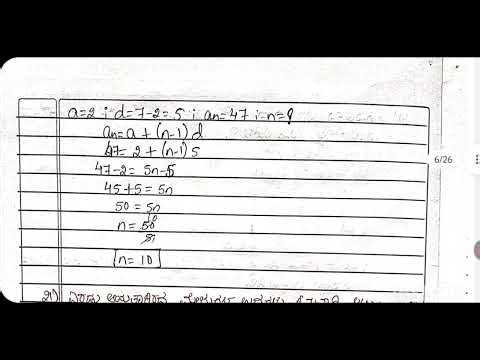 a=2 ; d=7-2=5 ; an=47 ; n=?
an=a+(n-1)d
47=2+(n-1)5
47-2=5n-5
45+5=5n
50=5n
n=50/5
n=10
6/26